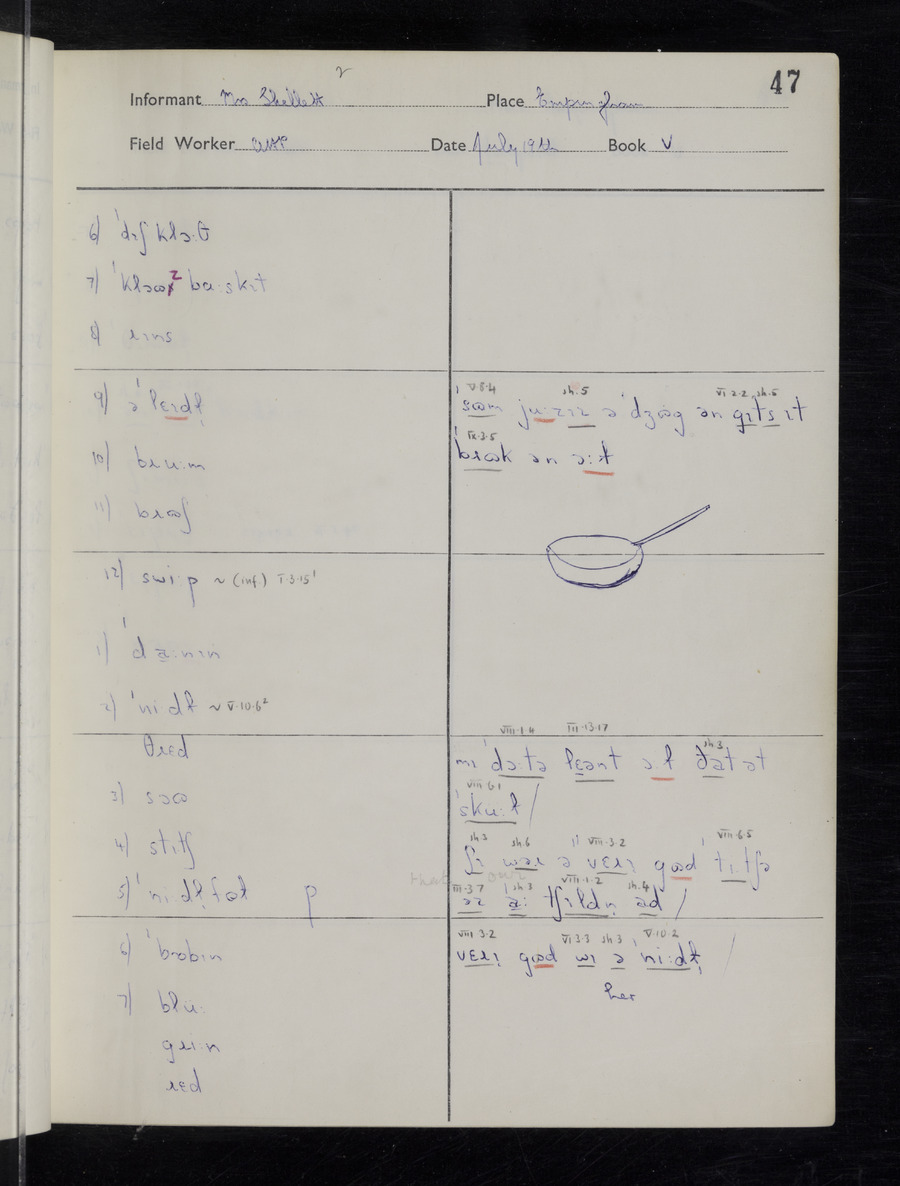 47
2
Informant Mrs Place Empingham
Field Worker Date July 19th Book V
6) ˈdɪʃ klɔ:θ
7) ˈklɔɷz bɑ:skɪt
8) ɹɪns
9) ə ˈlɛɪdɫ
10) bɹu:m
11) bɹɷʃ
12) swi:p ~ (inf.) I·3·15¹
1) ˈda:nɪn
2) ˈni:dɫ ~ V·10·6²
θɹɛd
3) sɔɷ
4) stɪtʃ
5) ˈni:dɫfɷl p
6) ˈbɒbɪn
7) blu:
gɹi:n
ɹɛd
V·8·4 sh.5 VI·2·2 sh.5
sɷm ju:zɪz ə ˈdʒɷg ən gɪts ɪt
IX·3·5
bɹɷk ən ɔ:ɫ
VIII·1·4 III·13·17 sh.3
mɪ ˈdɔ:tə lɛənt ɔ:ɫ ðat ət
VIII·6·1
ˈsku:ɫ /
sh.3 sh.6 VIII·3·2 VIII·6·5
ʃɪ wəɹ ə vɛɹɪ gɷd ti:tʃə
III·3·7 sh.3 VIII·1·2 sh.4
əz a: tʃɪldɹn̩ ad /
VIII·3·2 VI·3·3 sh.3 V·10·2
vɛɹɪ gɷd wɪ ə ni:dɫ /
her